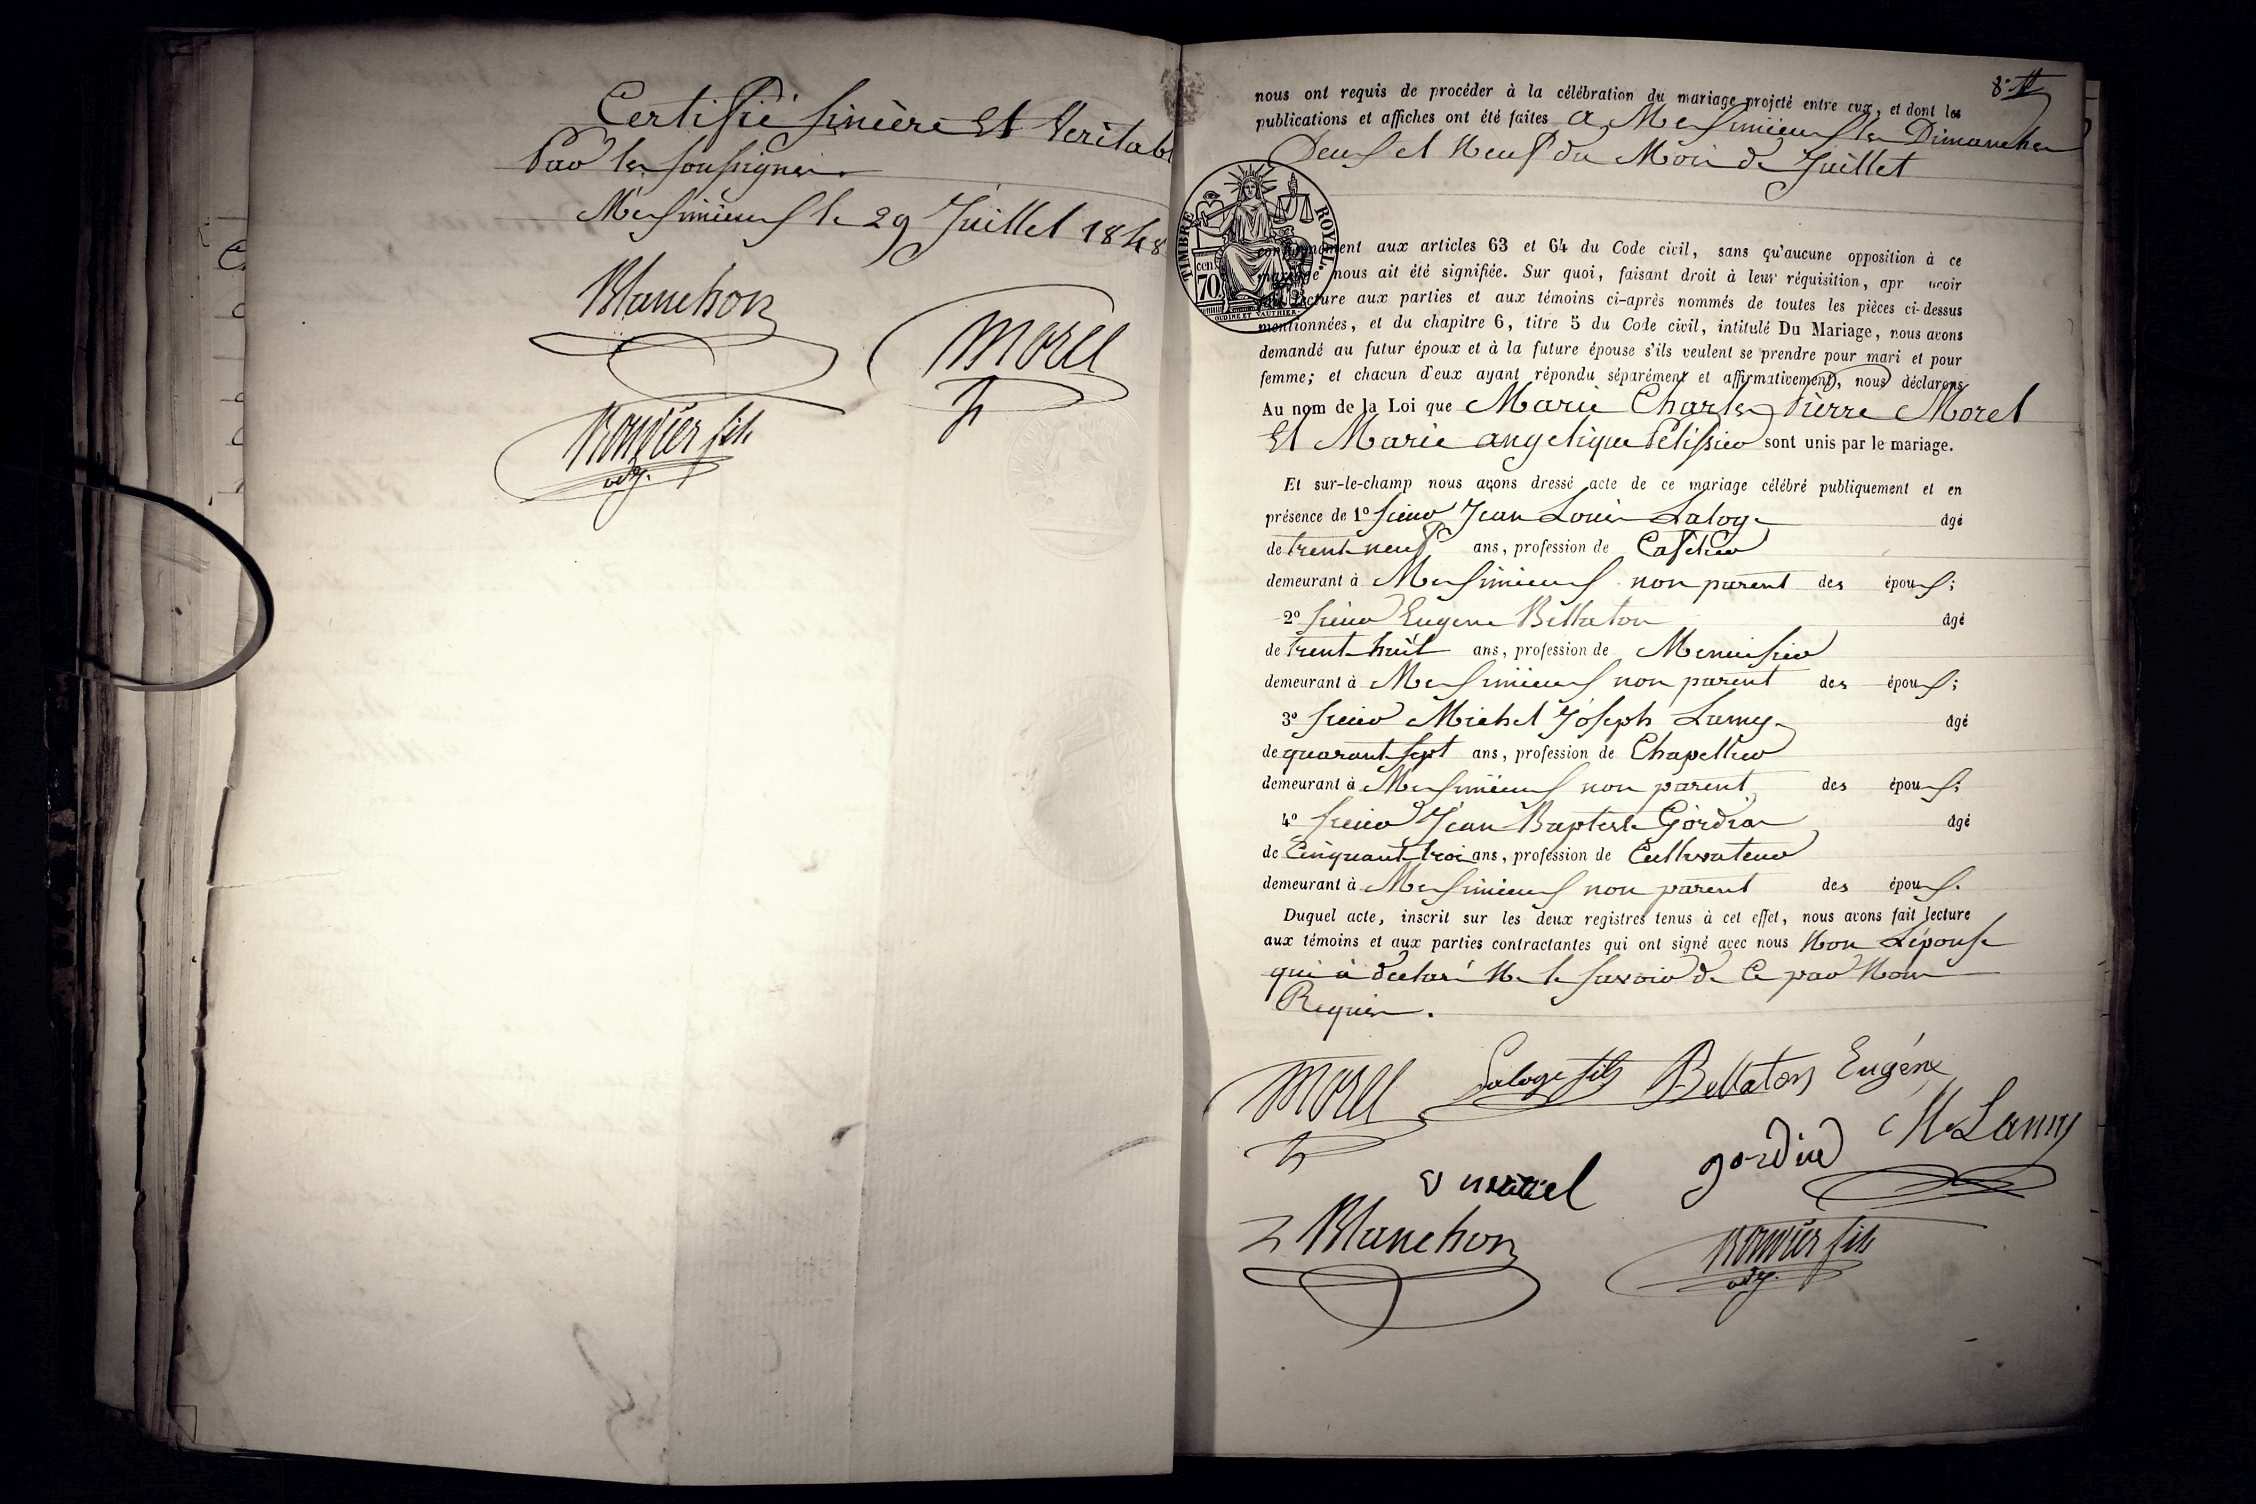 Certifié sincère Et Veritab
Par les soussignés.
Messimieux le 29 Juillet 1848
Blanchon
Morel
Bouvier fils
adj.
8e
nous ont requis de procéder à la célébration du mariage projeté entre eux, et dont les
publications et affiches ont été faites a Messimieux les Dimanches
Deux et Neuf du Mois de Juillet
TIMBRE ROYAL.
cen. 70
OUDINÉ ET VAUTHIER.
conformément aux articles 63 et 64 du Code civil, sans qu'aucune opposition à ce
mariage nous ait été signifiée. Sur quoi, faisant droit à leur réquisition, apr avoir
lecture aux parties et aux témoins ci-après nommés de toutes les pièces ci-dessus
mentionnées, et du chapitre 6, titre 5 du Code civil, intitulé Du Mariage, nous avons
demandé au futur époux et à la future épouse s'ils veulent se prendre pour mari et pour
femme; et chacun d'eux ayant répondu séparément et affirmativement, nous déclarons
Au nom de la Loi que Marie Charles Pierre Morel
Et Marie angelique Pelissier sont unis par le mariage.
Et sur-le-champ nous avons dressé acte de ce mariage célébré publiquement et en
présence de 1º sieur Jean Louis Laloge âgé
de trente neuf ans, profession de Cafetier
demeurant à Messimieux non parent des époux;
2º sieur Eugene Bellaton âgé
de trente huit ans, profession de Menuisier
demeurant à Messimieux non parent des époux;
3º sieur Michel Joseph Lamy âgé
de quarante sept ans, profession de Chapellier
demeurant à Messimieux non parent des époux;
4º sieur Jean Baptiste Gordia âgé
de Cinquante trois ans, profession de Cultivateur
demeurant à Messimieux non parent des époux.
Duquel acte, inscrit sur les deux registres tenus à cet effet, nous avons fait lecture
aux témoins et aux parties contractantes qui ont signé avec nous Non L'épouse
qui a déclaré Ne le savoir de Ce par Nous
Requise.
Morel Laloge fils Bellaton Eugéne
gordia M Lamy
Blanchon Bouvier fils
adj.